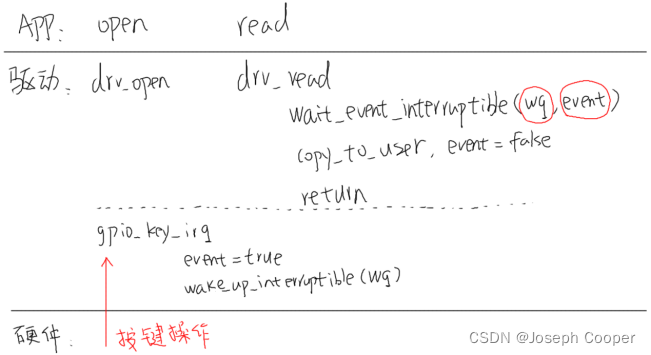 APP: open read
驱动: drv_open drv_read
wait_event_interruptible(wq, event)
copy_to_user, event = false
return
gpio_key_irq
event = true
wake_up_interruptible(wq)
硬件: 按键操作
CSDN @Joseph Cooper